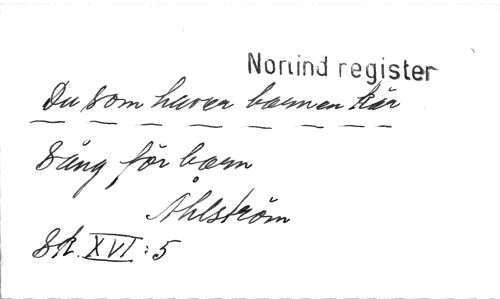 Norlind register
Du som haver barnen kär
Sång för barn
Åhlström
Sk. XVI:5